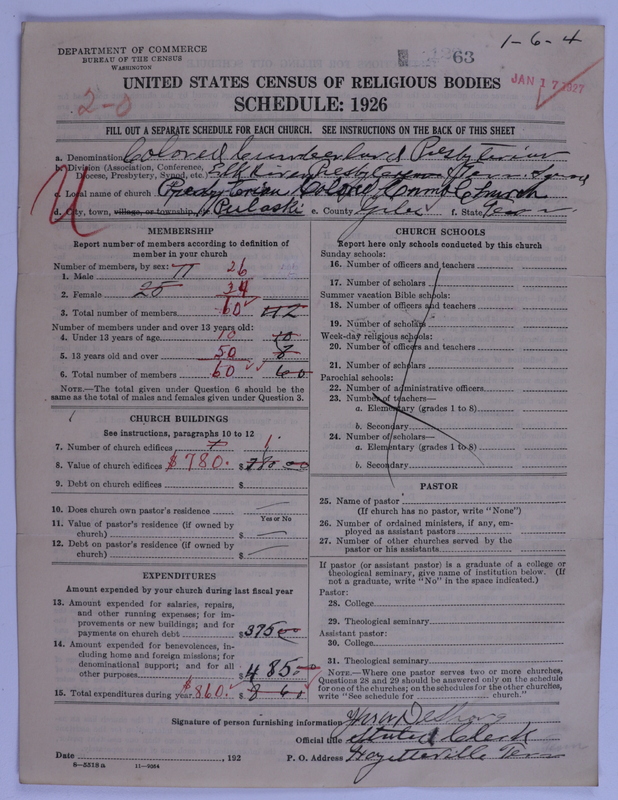 DEPARTMENT OF COMMERCE
BUREAU OF THE CENSUS
WASHINGTON
63
1-6-4
JAN 17 1927
UNITED STATES CENSUS OF RELIGIOUS BODIES
SCHEDULE: 1926
2-0
FILL OUT A SEPARATE SCHEDULE FOR EACH CHURCH. SEE INSTRUCTIONS ON THE BACK OF THIS SHEET
a. Denomination Colored Cumberland Presbyterian
b. Division (Association, Conference, Diocese, Presbytery, Synod, etc.) Elk River Presbyterian Tenn. Synod
c. Local name of church Presbyterian Colored Cumb Church
d. City, town, village, or township, Pulaski e. County Giles f. State Tenn
MEMBERSHIP
Report number of members according to definition of
member in your church
Number of members, by sex:
1. Male 26
2. Female 25 34
3. Total number of members 60
Number of members under and over 13 years old:
4. Under 13 years of age 10 10
5. 13 years old and over 50 8
6. Total number of members 60 60
NOTE.—The total given under Question 6 should be the
same as the total of males and females given under Question 3.
CHURCH BUILDINGS
See instructions, paragraphs 10 to 12
7. Number of church edifices 1
8. Value of church edifices $780. $780 00
9. Debt on church edifices $
10. Does church own pastor's residence
Yes or No
11. Value of pastor's residence (if owned by
church) $
12. Debt on pastor's residence (if owned by
church) $
EXPENDITURES
Amount expended by your church during last fiscal year
13. Amount expended for salaries, repairs,
and other running expenses; for im-
provements or new buildings; and for
payments on church debt $375 00
14. Amount expended for benevolences, in-
cluding home and foreign missions; for
denominational support; and for all
other purposes $485
15. Total expenditures during year $860. $860
CHURCH SCHOOLS
Report here only schools conducted by this church
Sunday schools:
16. Number of officers and teachers
17. Number of scholars
Summer vacation Bible schools:
18. Number of officers and teachers
19. Number of scholars
Week-day religious schools:
20. Number of officers and teachers
21. Number of scholars
Parochial schools:
22. Number of administrative officers
23. Number of teachers—
a. Elementary (grades 1 to 8)
b. Secondary
24. Number of scholars—
a. Elementary (grades 1 to 8)
b. Secondary
PASTOR
25. Name of pastor
(If church has no pastor, write "None")
26. Number of ordained ministers, if any, em-
ployed as assistant pastors
27. Number of other churches served by the
pastor or his assistants
If pastor (or assistant pastor) is a graduate of a college or
theological seminary, give name of institution below. (If
not a graduate, write "No" in the space indicated.)
Pastor:
28. College
29. Theological seminary
Assistant pastor:
30. College
31. Theological seminary
NOTE.—Where one pastor serves two or more churches,
Questions 28 and 29 should be answered only on the schedule
for one of the churches; on the schedules for the other churches,
write "See schedule for church."
Signature of person furnishing information
Official title Stated Clerk
Date , 192 P. O. Address Fayetteville Tenn
8-5518a 11-9264